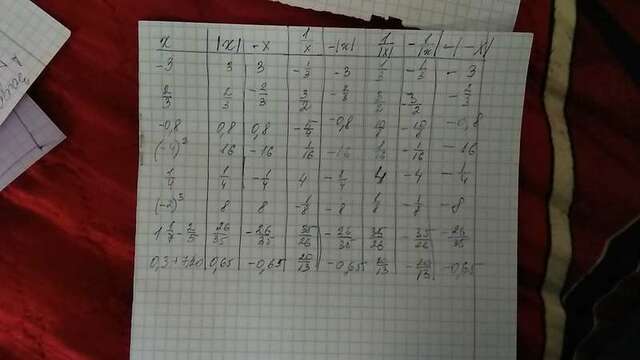 x |x| -x 1/x -|x| 1/|x| -1/|x| -|-x|
-3 3 3 -1/3 -3 1/3 -1/3 -3
2/3 2/3 -2/3 3/2 -2/3 3/2 -3/2
-0,8 0,8 0,8 -0,8 10/8 -10/8 -0,8
(-4)² 16 -16 1/16 -16 1/16 -1/16 -16
1/4 1/4 -1/4 4 -1/4 4 -4 -1/4
8 8 -1/8 -8 1/8 -1/8 -8
26/35 -26/35 35/26 -26/35 35/26 -35/26 -26/35
0,65 -0,65 20/13 -0,65 20/13 -20/13 -0,65